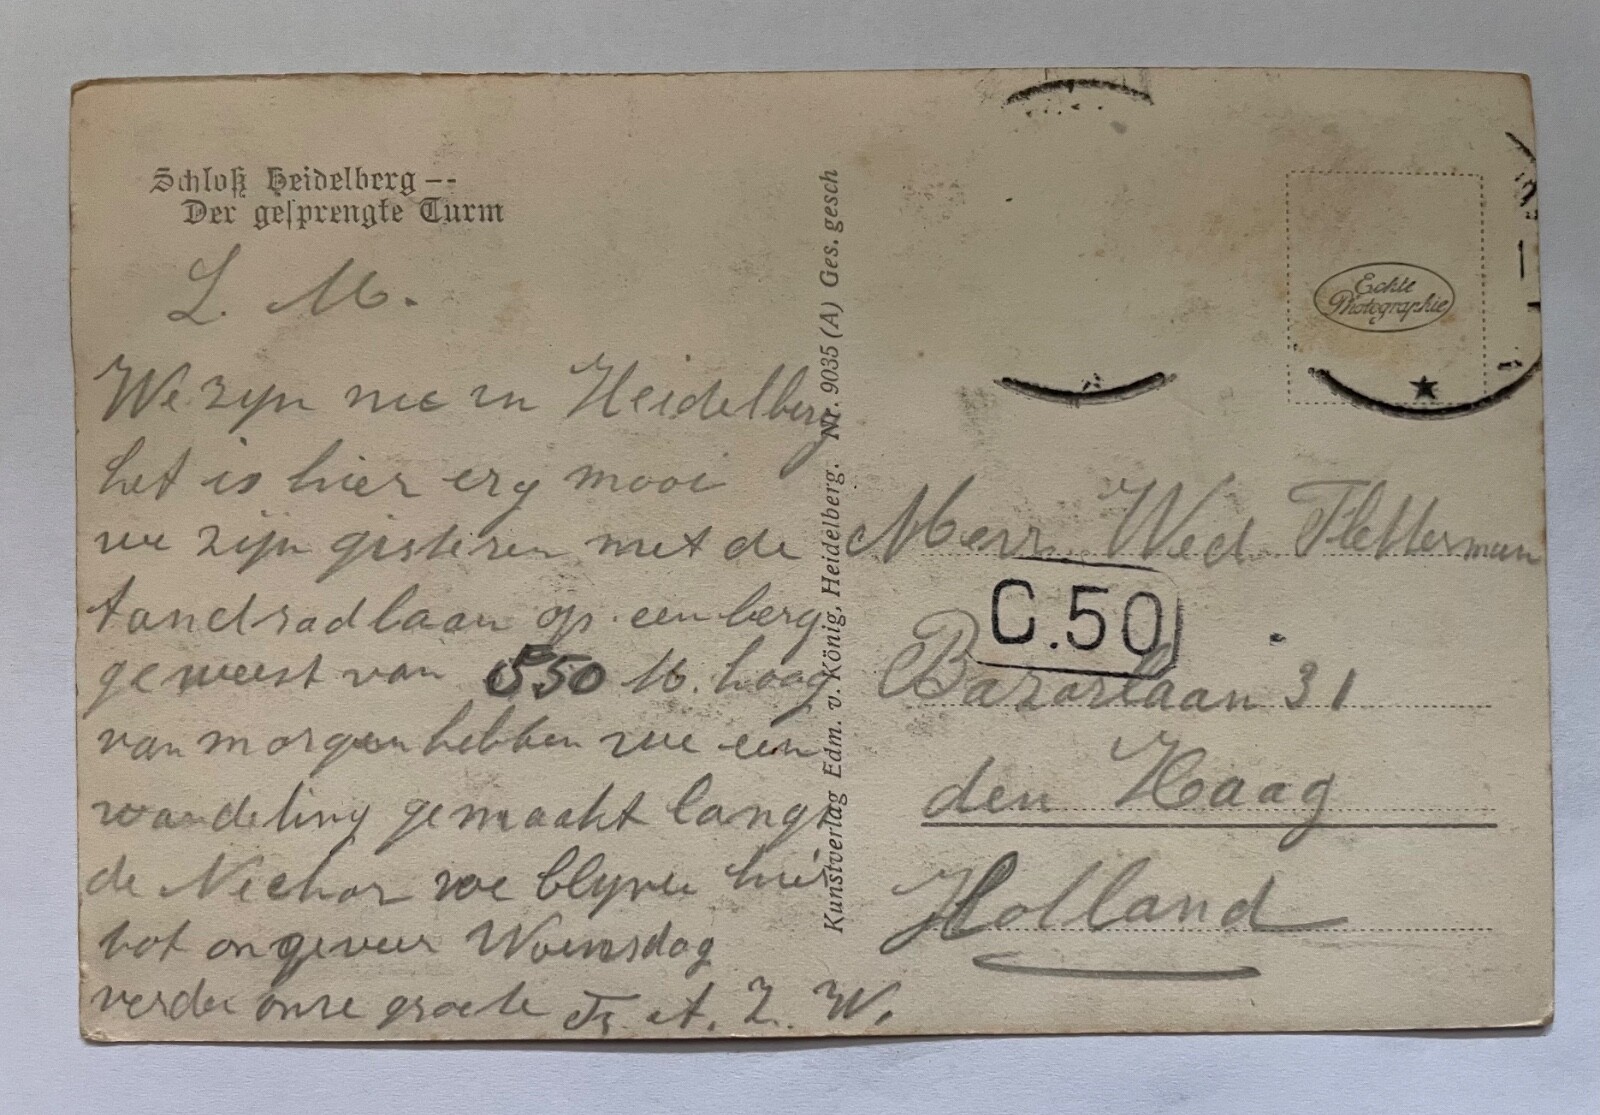 Schloß Heidelberg --
Der gesprengte Turm
L. M.
We zijn nu in Heidelberg
het is hier erg mooi
we zijn gisteren met de
tandradbaan op een berg
geweest van 550 M. hoog
van morgen hebben we een
wandeling gemaakt langs
de Neckar we blijven hier
tot ongeveer Woensdag
verder onze groete Fr. A. Z. W.
Kunstverlag Edm. v. König, Heidelberg. Nr. 9035 (A) Ges. gesch
Echte
Photographie
Wed. Fletterman
C.50
Bazarlaan 31
den Haag
Holland